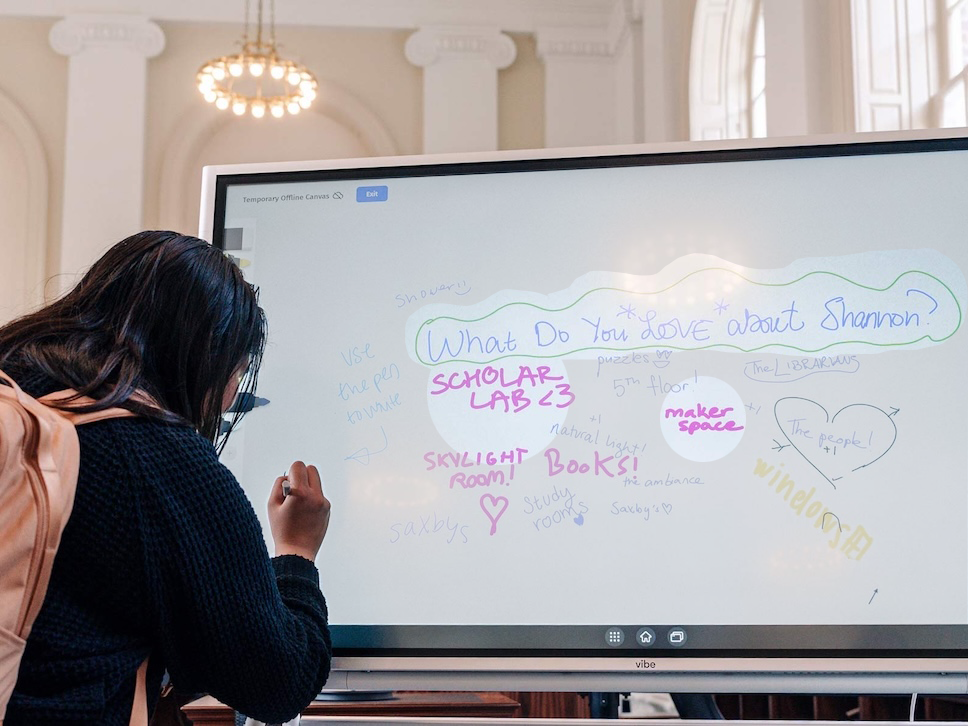 Temporary Offline Canvas
Exit
shower
What Do You *LOVE* about Shannon?
use
the pen
to write
SCHOLAR
LAB <3
puzzles
5th floor!
The LIBRARIANS
maker
space
+1
The people!
+1
+1
natural light!
SKYLIGHT
ROOM!
BOOKS!
the ambiance
windows
saxbys
study
rooms
Saxby's
vibe